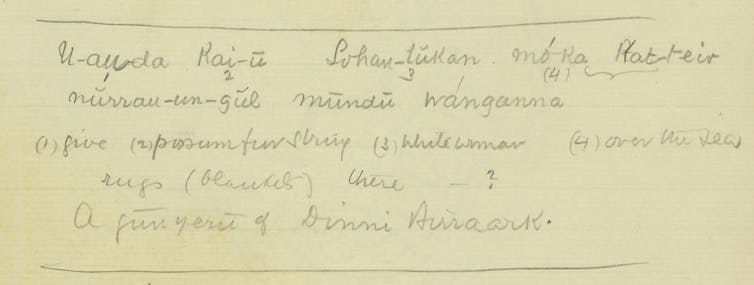 U-auda Kai-ū Lohan-tŭkan. mó-ka Rat-teir
2 3 (4)
nŭrrau-un-gŭl mŭndŭ wánganna
(1) give (2) possum fur string (3) white woman (4) over the sea
rugs (blankets) there - ?
A gŭnyerŭ of Dinni Birraark.